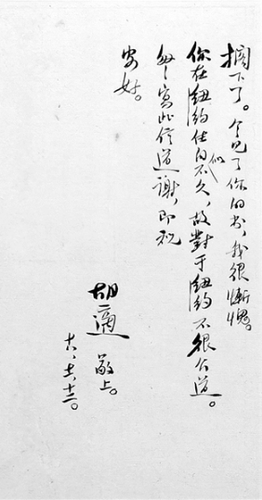 擱下了。今見了你的书，我很慚愧。
你在紐約住的似不久，故對于紐約不很公道。
匆匆寫此信道謝，即祝
安好。
胡適 敬上。